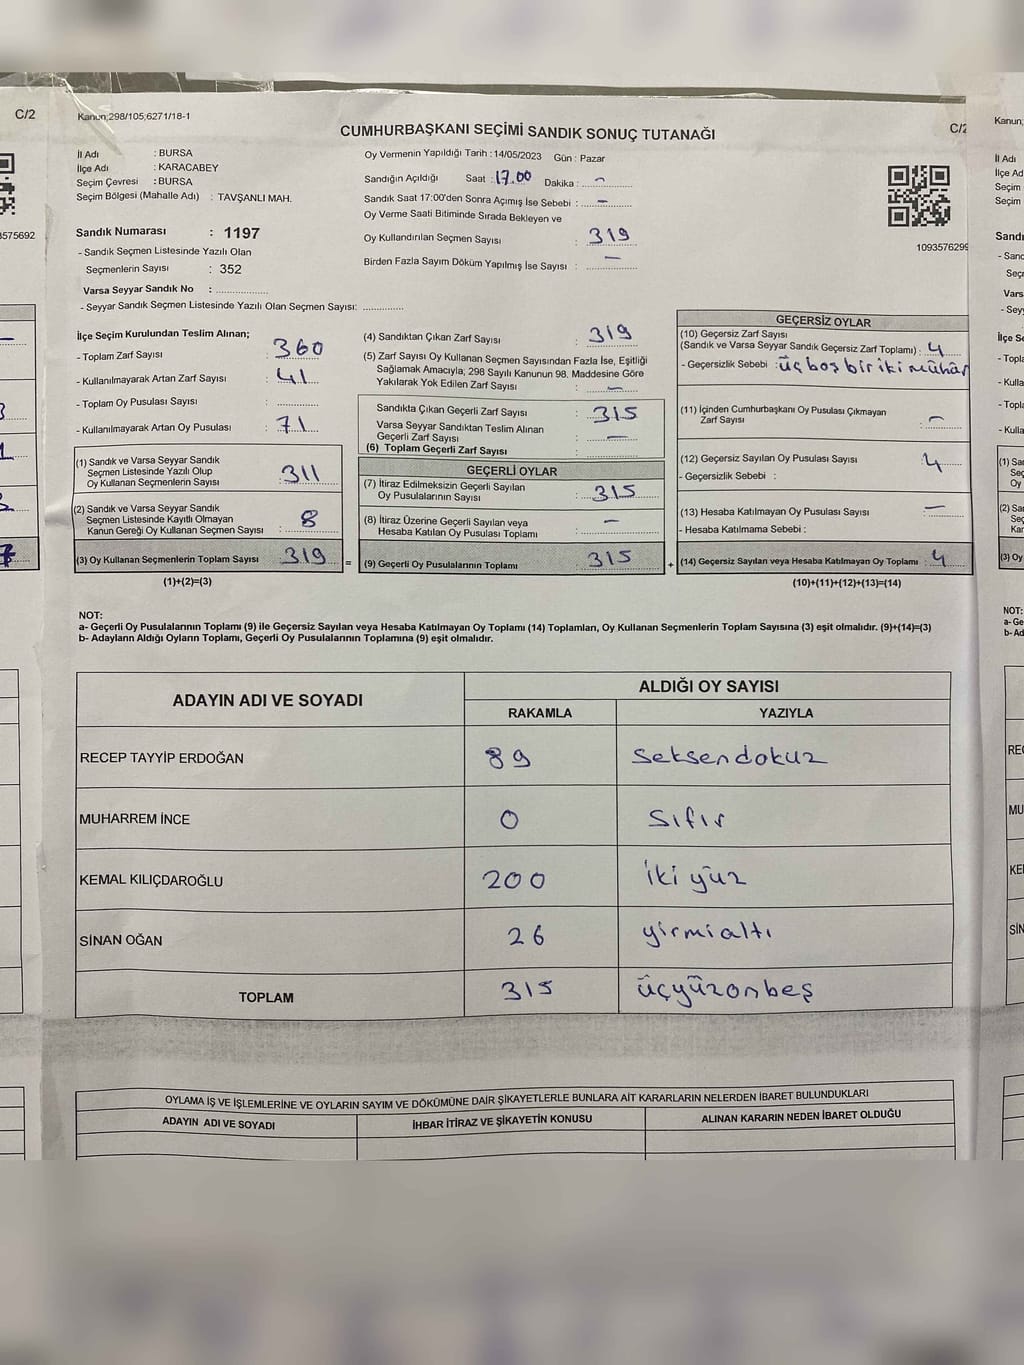 C/2
Kanun;298/105;6271/18-1
CUMHURBAŞKANI SEÇİMİ SANDIK SONUÇ TUTANAĞI
İl Adı : BURSA
İlçe Adı : KARACABEY
Seçim Çevresi : BURSA
Seçim Bölgesi (Mahalle Adı) : TAVŞANLI MAH.
Sandık Numarası : 1197
- Sandık Seçmen Listesinde Yazılı Olan
Seçmenlerin Sayısı : 352
Varsa Seyyar Sandık No : ....................
- Seyyar Sandık Seçmen Listesinde Yazılı Olan Seçmen Sayısı: ...............
Oy Vermenin Yapıldığı Tarih : 14/05/2023 Gün : Pazar
Sandığın Açıldığı Saat : 17.00 Dakika : -
Sandık Saat 17:00'den Sonra Açımış İse Sebebi : -
Oy Verme Saati Bitiminde Sırada Bekleyen ve
Oy Kullandırılan Seçmen Sayısı : 319
Birden Fazla Sayım Döküm Yapılmış İse Sayısı : -
1093576299
İlçe Seçim Kurulundan Teslim Alınan;
- Toplam Zarf Sayısı : 360
- Kullanılmayarak Artan Zarf Sayısı : 41
- Toplam Oy Pusulası Sayısı : ...............
- Kullanılmayarak Artan Oy Pusulası : 71
(1) Sandık ve Varsa Seyyar Sandık
Seçmen Listesinde Yazılı Olup
Oy Kullanan Seçmenlerin Sayısı : 311
(2) Sandık ve Varsa Seyyar Sandık
Seçmen Listesinde Kayıtlı Olmayan
Kanun Gereği Oy Kullanan Seçmen Sayısı : 8
(3) Oy Kullanan Seçmenlerin Toplam Sayısı : 319 =
(1)+(2)=(3)
(4) Sandıktan Çıkan Zarf Sayısı : 319
(5) Zarf Sayısı Oy Kullanan Seçmen Sayısından Fazla İse, Eşitliği
Sağlamak Amacıyla; 298 Sayılı Kanunun 98. Maddesine Göre
Yakılarak Yok Edilen Zarf Sayısı : -
Sandıkta Çıkan Geçerli Zarf Sayısı : 315
Varsa Seyyar Sandıktan Teslim Alınan
Geçerli Zarf Sayısı : -
(6) Toplam Geçerli Zarf Sayısı
GEÇERLİ OYLAR
(7) İtiraz Edilmeksizin Geçerli Sayılan
Oy Pusulalarının Sayısı : 315
(8) İtiraz Üzerine Geçerli Sayılan veya
Hesaba Katılan Oy Pusulası Toplamı : -
(9) Geçerli Oy Pusulalarının Toplamı : 315 +
GEÇERSİZ OYLAR
(10) Geçersiz Zarf Sayısı
(Sandık ve Varsa Seyyar Sandık Geçersiz Zarf Toplamı) : 4
- Geçersizlik Sebebi : üç boş bir iki mühür
(11) İçinden Cumhurbaşkanı Oy Pusulası Çıkmayan
Zarf Sayısı : -
(12) Geçersiz Sayılan Oy Pusulası Sayısı : 4
- Geçersizlik Sebebi :
(13) Hesaba Katılmayan Oy Pusulası Sayısı : -
- Hesaba Katılmama Sebebi :
(14) Geçersiz Sayılan veya Hesaba Katılmayan Oy Toplamı : 4
(10)+(11)+(12)+(13)=(14)
NOT:
a- Geçerli Oy Pusulalarının Toplamı (9) ile Geçersiz Sayılan veya Hesaba Katılmayan Oy Toplamı (14) Toplamları, Oy Kullanan Seçmenlerin Toplam Sayısına (3) eşit olmalıdır. (9)+(14)=(3)
b- Adayların Aldığı Oyların Toplamı, Geçerli Oy Pusulalarının Toplamına (9) eşit olmalıdır.
ADAYIN ADI VE SOYADI ALDIĞI OY SAYISI
RAKAMLA YAZIYLA
RECEP TAYYİP ERDOĞAN 89 Seksendokuz
MUHARREM İNCE 0 Sıfır
KEMAL KILIÇDAROĞLU 200 iki yüz
SİNAN OĞAN 26 yirmialtı
TOPLAM 315 üçyüzonbeş
OYLAMA İŞ VE İŞLEMLERİNE VE OYLARIN SAYIM VE DÖKÜMÜNE DAİR ŞİKAYETLERLE BUNLARA AİT KARARLARIN NELERDEN İBARET BULUNDUKLARI
ADAYIN ADI VE SOYADI İHBAR İTİRAZ VE ŞİKAYETİN KONUSU ALINAN KARARIN NEDEN İBARET OLDUĞU